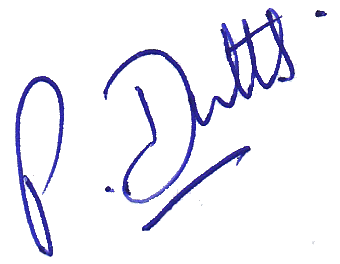 P. Dutts.